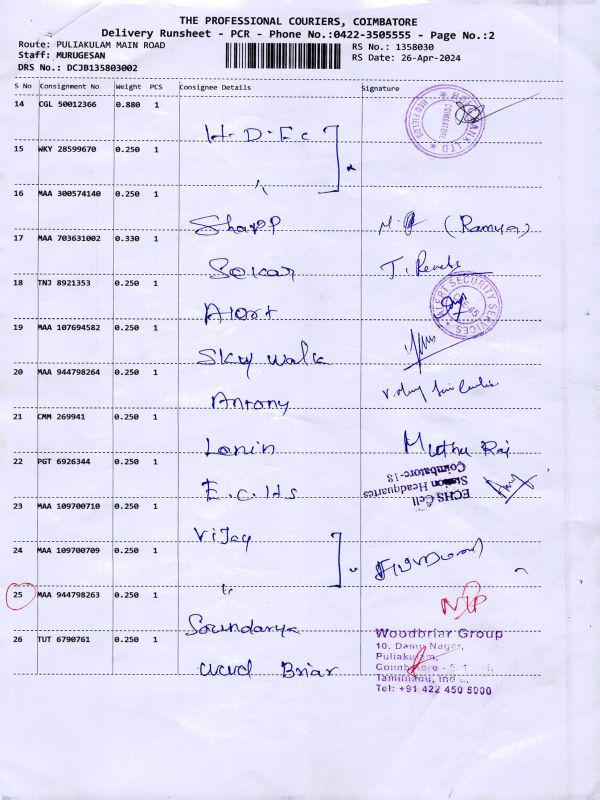 THE PROFESSIONAL COURIERS, COIMBATORE
Delivery Runsheet - PCR - Phone No.:0422-3505555 - Page No.:2
Route: PULIAKULAM MAIN ROAD
RS No.: 1358030
Staff: MURUGESAN
RS Date: 26-Apr-2024
DRS No.: DCJB135803002
S No Consignment No Weight PCS Consignee Details Signature
14 CGL 50012366 0.880 1
H.D.F.C
15 WKY 28599670 0.250 1
16 MAA 300574140 0.250 1
Sharp (Ramya)
17 MAA 703631002 0.330 1
Sekar
18 TNJ 8921353 0.250 1
Alert
SECURITY SERVICES
19 MAA 107694582 0.250 1
Sky walk
20 MAA 944798264 0.250 1
Antony
21 CMM 269941 0.250 1
Lenin Muthu Raj
22 PGT 6926344 0.250 1
E.C.Hs
ECHS Cell
Station Headquarters
Coimbatore-18
23 MAA 109700710 0.250 1
Vijay
24 MAA 109700709 0.250 1
25 MAA 944798263 0.250 1
Soundarya
26 TUT 6790761 0.250 1
Woodbriar Group
10, Damu Nagar,
Puliakulam,
wood Briar
Tamilnadu, India,
Tel: +91 422 450 5000